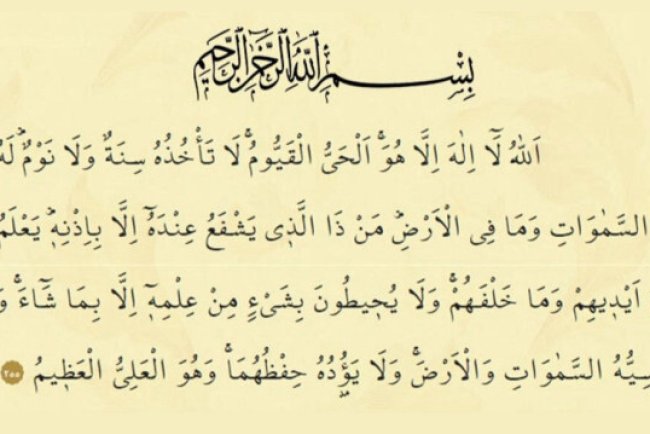 بِسْمِ اللّٰهِ الرَّحْمٰنِ الرَّحِيمِ
اَللّٰهُ لَٓا اِلٰهَ اِلَّا هُوَۚ اَلْحَيُّ الْقَيُّومُۚ لَا تَأْخُذُهُ سِنَةٌ وَلَا نَوْمٌۜ لَهُ
السَّمٰوَاتِ وَمَا فِي الْاَرْضِۜ مَنْ ذَا الَّذ۪ي يَشْفَعُ عِنْدَهُٓ اِلَّا بِاِذْنِه۪ۜ يَعْلَمُ
اَيْد۪يهِمْ وَمَا خَلْفَهُمْۚ وَلَا يُح۪يطُونَ بِشَيْءٍ مِنْ عِلْمِه۪ٓ اِلَّا بِمَا شَٓاءَۚ
السَّمٰوَاتِ وَالْاَرْضَۚ وَلَا يَؤُ۫دُهُ حِفْظُهُمَاۚ وَهُوَ الْعَلِيُّ الْعَظ۪يمُ ٢٥٥